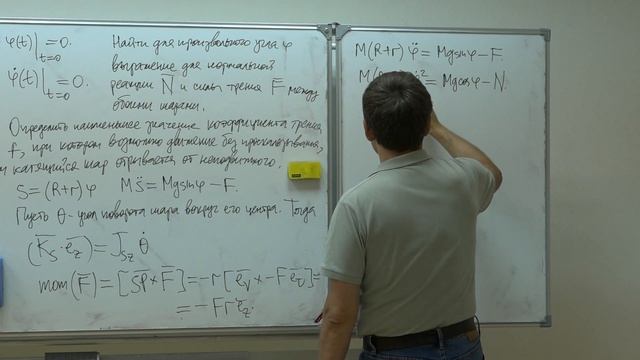 φ(t)|t=0 = 0.
φ̇(t)|t=0 = 0.
Найти для произвольного угла φ
выражение для нормальной
реакции N̄ и силы трения F̄ между
обоими шарами.
Определить наименьшее значение коэффициента трения
f, при котором возможно движение без проскальзывания,
катящийся шар отрывается от неподвижного.
S=(R+r)φ Ms̈=Mgsinφ-F.
Пусть θ-угол поворота шара вокруг его центра. Тогда
(K̄s·ēz)=Jsz θ̇
mom(F̄)=[SP̄×F̄]=-r[ēν×-Fēτ]=
=-Frēz.
M(R+r)φ̈=Mgsinφ-F.
φ̇²=Mgcosφ-N.